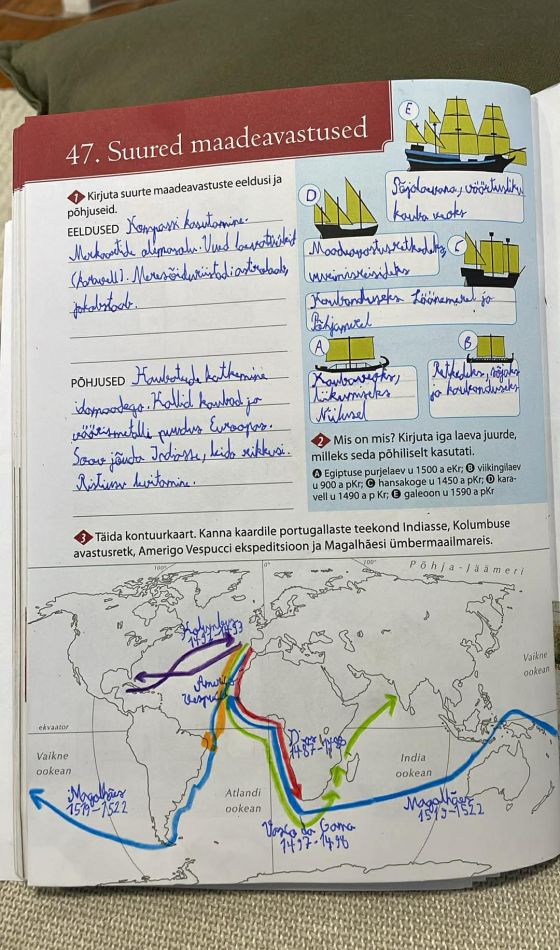 47. Suured maadeavastused
1 Kirjuta suurte maadeavastuste eeldusi ja
põhjuseid.
EELDUSED Kompassi kasutamine.
Merkaartide olemasolu. Uued laevatüübid
(karavell). Meresõiduriistad: astrolaab,
jakobstaab.
PÕHJUSED Kaubateede katkemine
idamaadega. Kallid kaubad ja
väärismetalli puudus Euroopas.
Soov jõuda Indiasse, leida rikkusi.
Ristiusu levitamine.
E
Sõjalaevana, väärtusliku
kauba veoks
D
Maadeavastusretkedeks,
C
Kaubanduseks Läänemerel ja
Põhjamerel
A
Kaubaveoks,
liikumiseks
Niilusel
B
Retkedeks, sõjaks
ja kaubanduseks
2 Mis on mis? Kirjuta iga laeva juurde,
milleks seda põhiliselt kasutati.
A Egiptuse purjelaev u 1500 a eKr; B viikingilaev
u 900 a pKr; C hansakoge u 1450 a pKr; D kara-
vell u 1490 a p Kr; E galeoon u 1590 a pKr
3 Täida kontuurkaart. Kanna kaardile portugallaste teekond Indiasse, Kolumbuse
avastusretk, Amerigo Vespucci ekspeditsioon ja Magalhãesi ümbermaailmareis.
100°
0°
100°
Põhja-Jäämeri
Kolumbus
1492-1493
Vespucci
Vaikne
ookean
ekvaator
Dias
1487-1488
Vaikne
ookean
India
ookean
Atlandi
ookean
Magalhães
1519-1522
Magalhães
1519-1522
Vasco da Gama
1497-1498